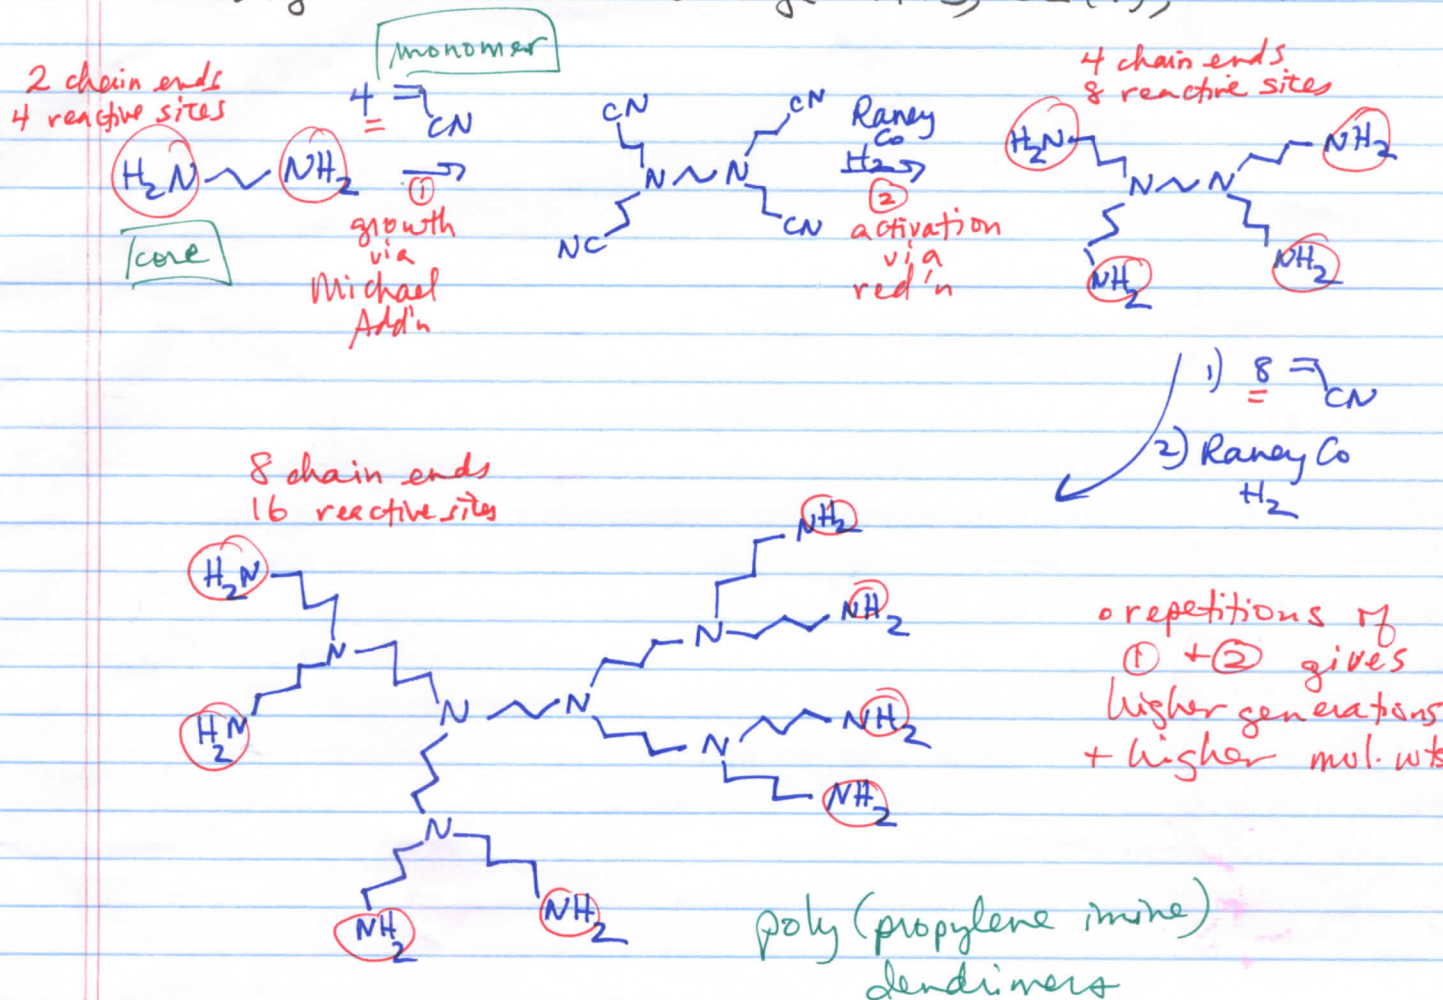 monomer
2 chain ends
4 reactive sites
4 CN
H2N NH2
①
growth
via
Michael
Add'n
core
CN
CN
N N
NC
CN
Raney
Co
H2
②
activation
via
red'n
4 chain ends
8 reactive sites
H2N
NH2
N N
NH2
NH2
1) 8 CN
2) Raney Co
H2
8 chain ends
16 reactive sites
NH2
H2N
NH2
N
N
H2N
N
N
NH2
N
NH2
N
NH2
NH2
o repetitions of
① + ② gives
higher generations
+ higher mol. wts
poly (propylene imine)
dendrimers